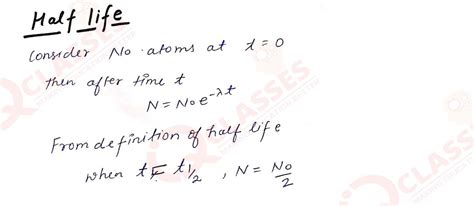 Half life
Consider No atoms at t = 0
then after time t
N = N₀e^-λt
From definition of half life
when t = t1/2 , N = N₀/2
CLASSES
CLASSES
CLASS